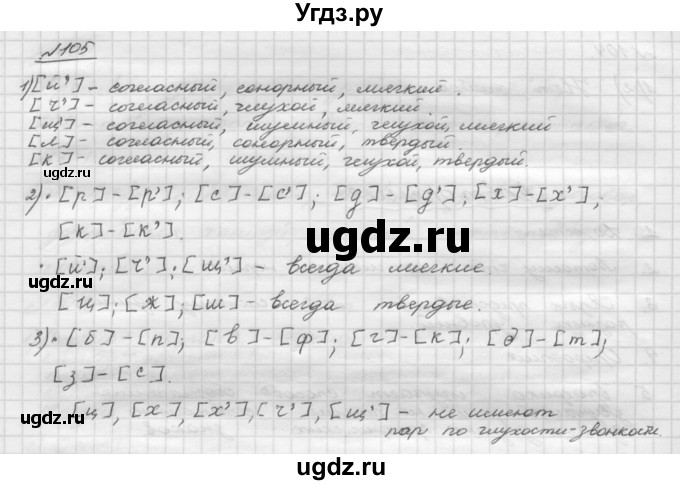 Угдз.ру
№105
1) [й'] – согласный, сонорный, мягкий.
[ч'] – согласный, глухой, мягкий.
[щ'] – согласный, шумный, глухой, мягкий
[л] – согласный, сонорный, твёрдый.
[к] – согласный, шумный, глухой, твёрдый.
2) • [р] – [р']; [с] – [с']; [д] – [д']; [х] – [х'];
[к] – [к'].
• [й']; [ч']; [щ'] – всегда мягкие
[ц]; [ж]; [ш] – всегда твердые.
3) • [б] – [п]; [в] – [ф]; [г] – [к]; [д] – [т];
[з] – [с].
[ц], [х], [х'], [ч'], [щ'] – не имеют
пар по глухости-звонкости.
ugdz.ru
ugdz.ru
ugdz.ru
ugdz.ru
ugdz.ru
ugdz.ru
ugdz.ru